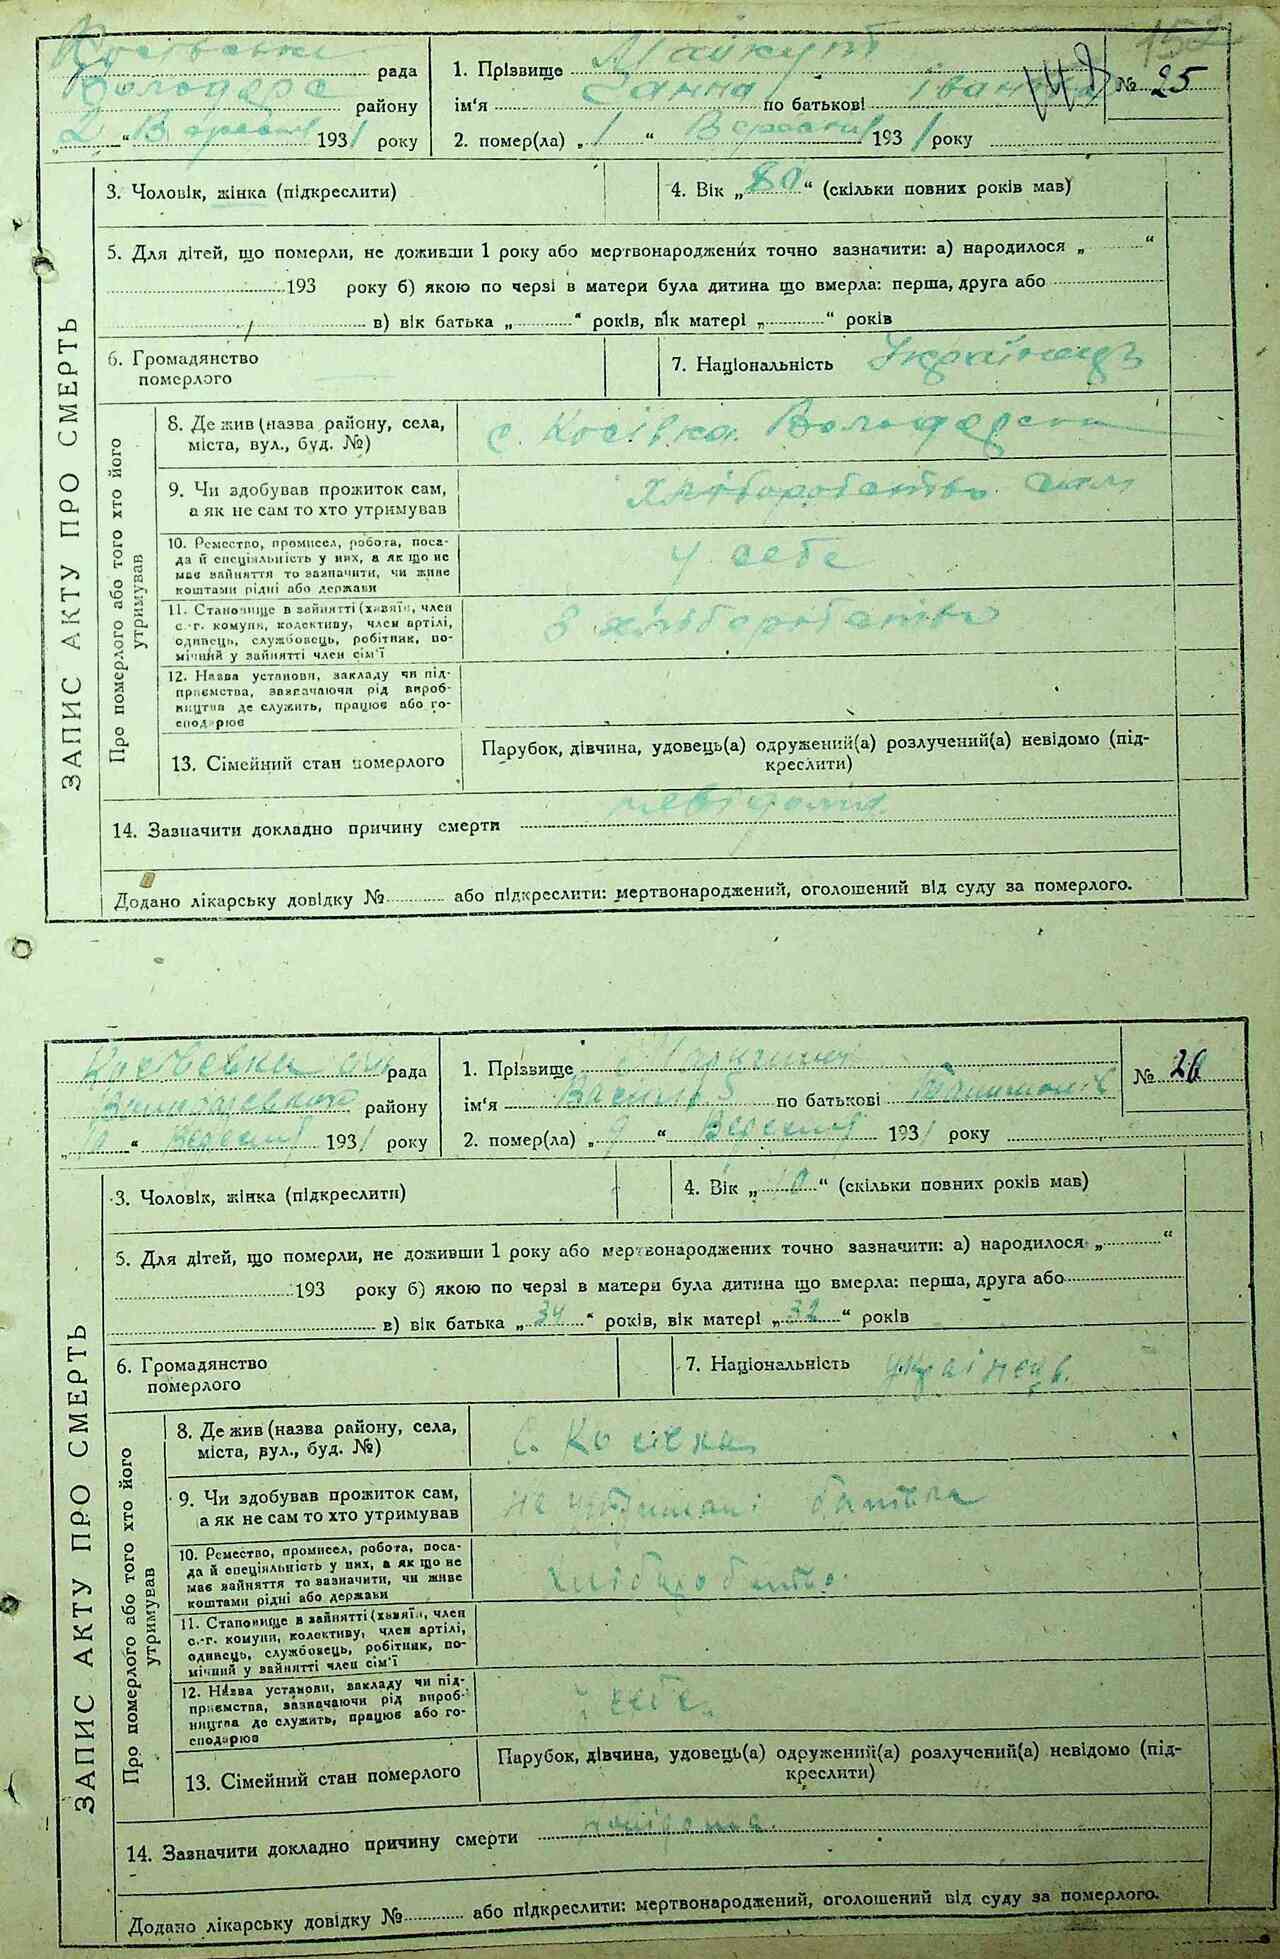 152
Косівська рада
Володарс району
„ 2 “ Вересня 1931 року
1. Прізвище Майкут
ім'я Ганна по батькові Іванівна
2. помер(ла) „ 1 “ Вересня 1931 року
№ 25
ЗАПИС АКТУ ПРО СМЕРТЬ
3. Чоловік, жінка (підкреслити)
4. Вік „ 80 “ (скільки повних років мав)
5. Для дітей, що померли, не доживши 1 року або мертвонароджених точно зазначити: а) народилося „ “
193 року б) якою по черзі в матери була дитина що вмерла: перша, друга або
в) вік батька „ “ років, вік матері „ “ років
6. Громадянство
померлого
7. Національність Українець
Про померлого або того хто його
утримував
8. Де жив (назва району, села,
міста, вул., буд. №)
с. Косівка Володарськ
9. Чи здобував прожиток сам,
а як не сам то хто утримував
Хліборобство сам
10. Ремество, промисел, робота, поса-
да й спеціяльність у них, а як що не
має зайняття то зазначити, чи живе
коштами рідні або держави
у себе
11. Становище в зайнятті (хазяїн, член
с.-г. комуни, колективу, член артілі,
одинець, службовець, робітник, по-
мічний у зайнятті член сім'ї
В хліборобство
12. Назва установи, закладу чи під-
приємства, зазначаючи рід вироб-
ництва де служить, працює або го-
сподарює
13. Сімейний стан померлого
Парубок, дівчина, удовець(а) одружений(а) розлучений(а) невідомо (під-
креслити)
14. Зазначити докладно причину смерти невідома
Додано лікарську довідку № або підкреслити: мертвонароджений, оголошений від суду за померлого.
рада
району
„ 10 “ Вересня 1931 року
1. Прізвище
ім'я Василь по батькові
2. помер(ла) „ 9 “ Вересня 1931 року
№ 26
ЗАПИС АКТУ ПРО СМЕРТЬ
3. Чоловік, жінка (підкреслити)
4. Вік „ 10 “ (скільки повних років мав)
5. Для дітей, що померли, не доживши 1 року або мертвонароджених точно зазначити: а) народилося „ “
193 року б) якою по черзі в матери була дитина що вмерла: перша, друга або
в) вік батька „ 34 “ років, вік матері „ 32 “ років
6. Громадянство
померлого
7. Національність українець.
Про померлого або того хто його
утримував
8. Де жив (назва району, села,
міста, вул., буд. №)
С. Косівка
9. Чи здобував прожиток сам,
а як не сам то хто утримував
на утриманні батька
10. Ремество, промисел, робота, поса-
да й спеціяльність у них, а як що не
має зайняття то зазначити, чи живе
коштами рідні або держави
хліборобство.
11. Становище в зайнятті (хазяїн, член
с.-г. комуни, колективу, член артілі,
одинець, службовець, робітник, по-
мічний у зайнятті член сім'ї
12. Назва установи, закладу чи під-
приємства, зазначаючи рід вироб-
ництва де служить, працює або го-
сподарює
у себе.
13. Сімейний стан померлого
Парубок, дівчина, удовець(а) одружений(а) розлучений(а) невідомо (під-
креслити)
14. Зазначити докладно причину смерти невідома.
Додано лікарську довідку № або підкреслити: мертвонароджений, оголошений від суду за померлого.